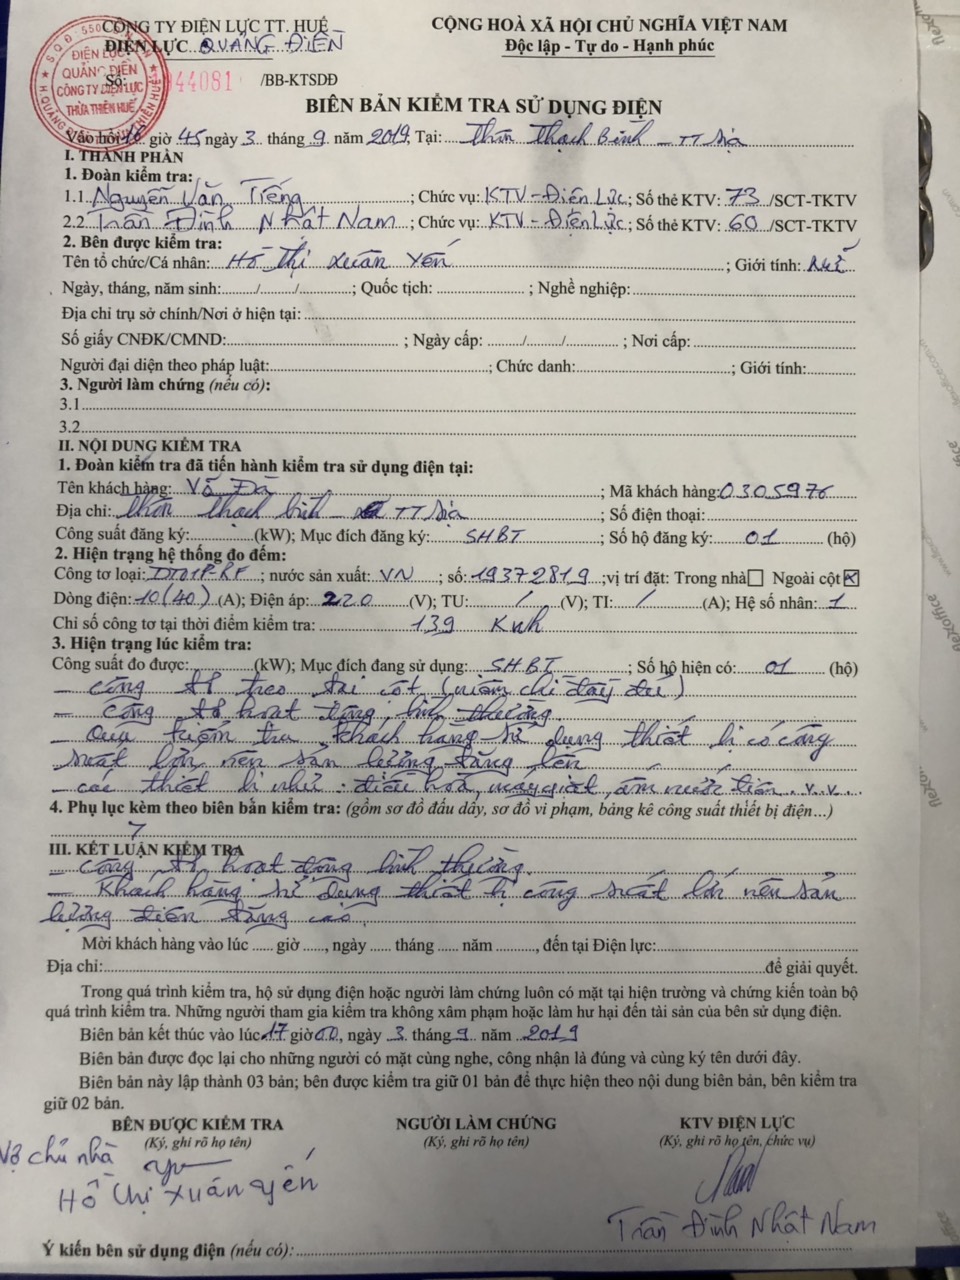 CÔNG TY ĐIỆN LỰC TT. HUẾ
ĐIỆN LỰC QUẢNG ĐIỀN
CỘNG HOÀ XÃ HỘI CHỦ NGHĨA VIỆT NAM
Độc lập - Tự do - Hạnh phúc
ĐIỆN LỰC
QUẢNG ĐIỀN
CÔNG TY ĐIỆN LỰC
THỪA THIÊN HUẾ
Số: 044081 /BB-KTSDĐ
BIÊN BẢN KIỂM TRA SỬ DỤNG ĐIỆN
Vào hồi 16 giờ 45, ngày 3 tháng 9 năm 2019, Tại: Thôn Thạch Bình - TT Sịa
I. THÀNH PHẦN
1. Đoàn kiểm tra:
1.1 Nguyễn Văn Tiếng; Chức vụ: KTV - Điện Lực; Số thẻ KTV: 73 /SCT-TKTV
2.2 Trần Đình Nhất Nam; Chức vụ: KTV - Điện Lực; Số thẻ KTV: 60 /SCT-TKTV
2. Bên được kiểm tra:
Tên tổ chức/Cá nhân: Hồ Thị Xuân Yến; Giới tính: Nữ
Ngày, tháng, năm sinh:......../......../........; Quốc tịch: ........................ ; Nghề nghiệp:
Địa chỉ trụ sở chính/Nơi ở hiện tại:
Số giấy CNĐK/CMND: ; Ngày cấp: ......./......../......... ; Nơi cấp:
Người đại diện theo pháp luật: ; Chức danh: ; Giới tính:
3. Người làm chứng (nếu có):
3.1
3.2
II. NỘI DUNG KIỂM TRA
1. Đoàn kiểm tra đã tiến hành kiểm tra sử dụng điện tại:
Tên khách hàng: Võ Đà ; Mã khách hàng: 0305976
Địa chỉ: thôn thạch bình TT Sịa ; Số điện thoại:
Công suất đăng ký: (kW); Mục đích đăng ký: SHBT ; Số hộ đăng ký: 01 (hộ)
2. Hiện trạng hệ thống đo đếm:
Công tơ loại: DT01P-RF ; nước sản xuất: VN ; số: 19372819 ;vị trí đặt: Trong nhà ☐ Ngoài cột ☒
Dòng điện: 10(40) (A); Điện áp: 220 (V); TU: / (V); TI: / (A); Hệ số nhân: 1
Chỉ số công tơ tại thời điểm kiểm tra: 139 Kwh
3. Hiện trạng lúc kiểm tra:
Công suất đo được: (kW); Mục đích đang sử dụng: SHBT ; Số hộ hiện có: 01 (hộ)
- Công tơ treo tại cột (niêm chì đầy đủ)
- Công tơ hoạt động bình thường
- Qua kiểm tra, khách hàng sử dụng thiết bị có công
suất lớn nên sản lượng tăng lên
- các thiết bị như: điều hoà, máy giặt, ấm nước điện v.v...
4. Phụ lục kèm theo biên bản kiểm tra: (gồm sơ đồ đấu dây, sơ đồ vi phạm, bảng kê công suất thiết bị điện...)
III. KẾT LUẬN KIỂM TRA
- Công tơ hoạt động bình thường
- Khách hàng sử dụng thiết bị công suất lớn nên sản
lượng điện tăng cao
Mời khách hàng vào lúc ..... giờ ....., ngày ..... tháng ..... năm ........, đến tại Điện lực:
Địa chỉ: để giải quyết.
Trong quá trình kiểm tra, hộ sử dụng điện hoặc người làm chứng luôn có mặt tại hiện trường và chứng kiến toàn bộ
quá trình kiểm tra. Những người tham gia kiểm tra không xâm phạm hoặc làm hư hại đến tài sản của bên sử dụng điện.
Biên bản kết thúc vào lúc 17 giờ 00, ngày 3 tháng 9 năm 2019
Biên bản được đọc lại cho những người có mặt cùng nghe, công nhận là đúng và cùng ký tên dưới đây.
Biên bản này lập thành 03 bản; bên được kiểm tra giữ 01 bản để thực hiện theo nội dung biên bản, bên kiểm tra
giữ 02 bản.
BÊN ĐƯỢC KIỂM TRA NGƯỜI LÀM CHỨNG KTV ĐIỆN LỰC
(Ký, ghi rõ họ tên) (Ký, ghi rõ họ tên) (Ký, ghi rõ họ tên, chức vụ)
Vợ chủ nhà
Hồ Thị Xuân Yến
Trần Đình Nhật Nam
Ý kiến bên sử dụng điện (nếu có):